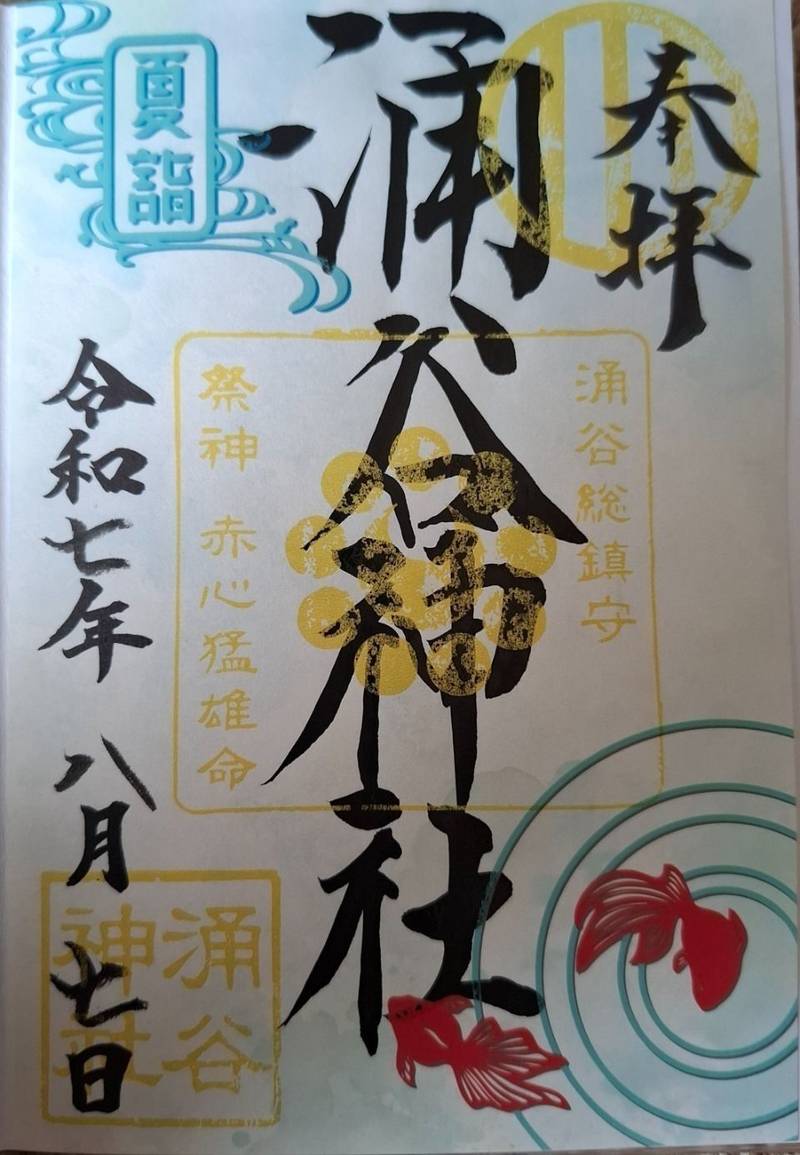 奉拝
涌谷総鎮守
涌谷神社
祭神 赤心猛雄命
夏詣
令和七年 八月 七日
涌谷
神社